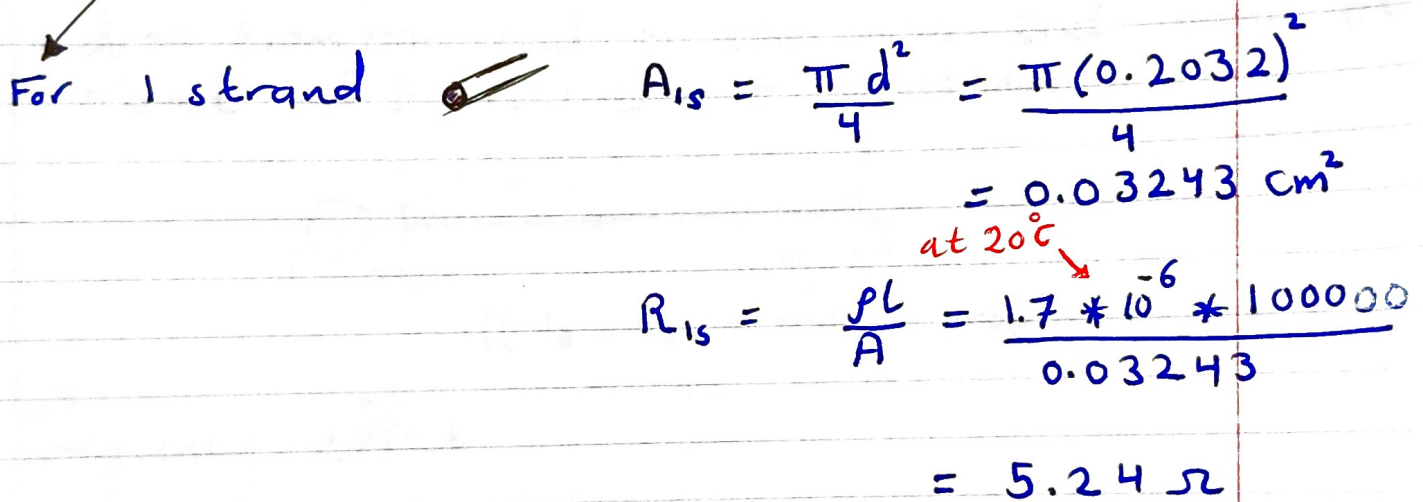 For 1 strand A₁ₛ = πd²/4 = π(0.2032)²/4
= 0.03243 cm²
at 20°C
R₁ₛ = ρL/A = 1.7 * 10⁻⁶ * 100000/0.03243
= 5.24 Ω